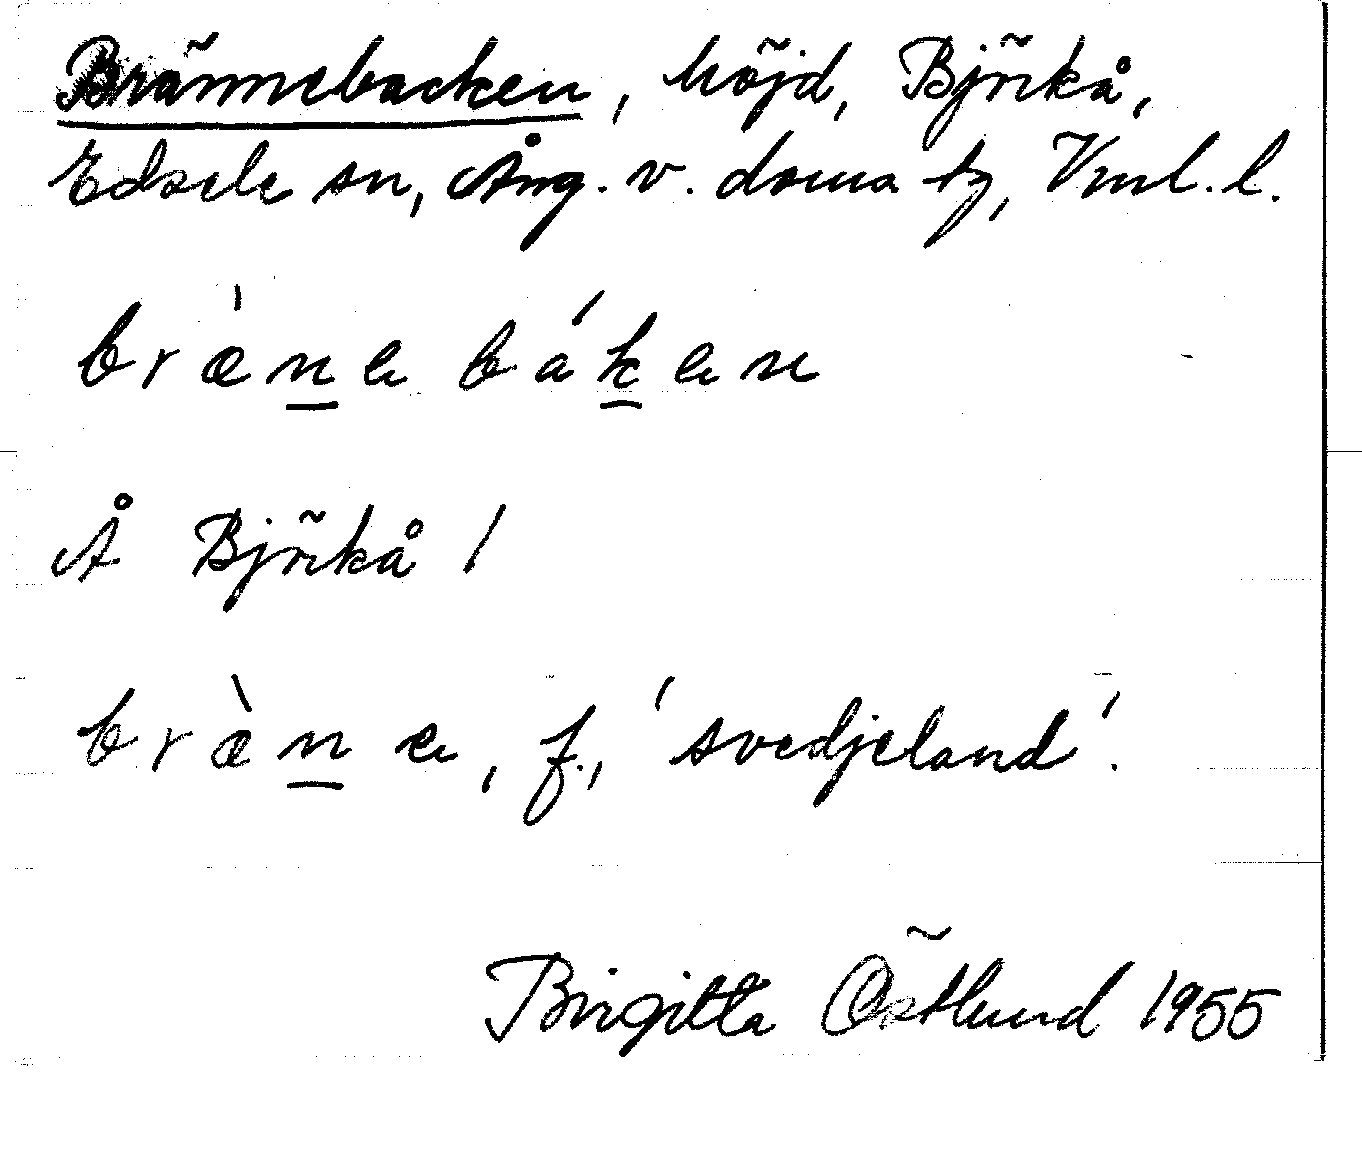 Brännebacken, höjd, Björkå,
Edsele sn, Ång. v. doma tg, Vml. l.
bræ̀ne báken
Å Björkå /
bræ̀ne, f., 'svedjeland'.
Birgitta Östlund 1955